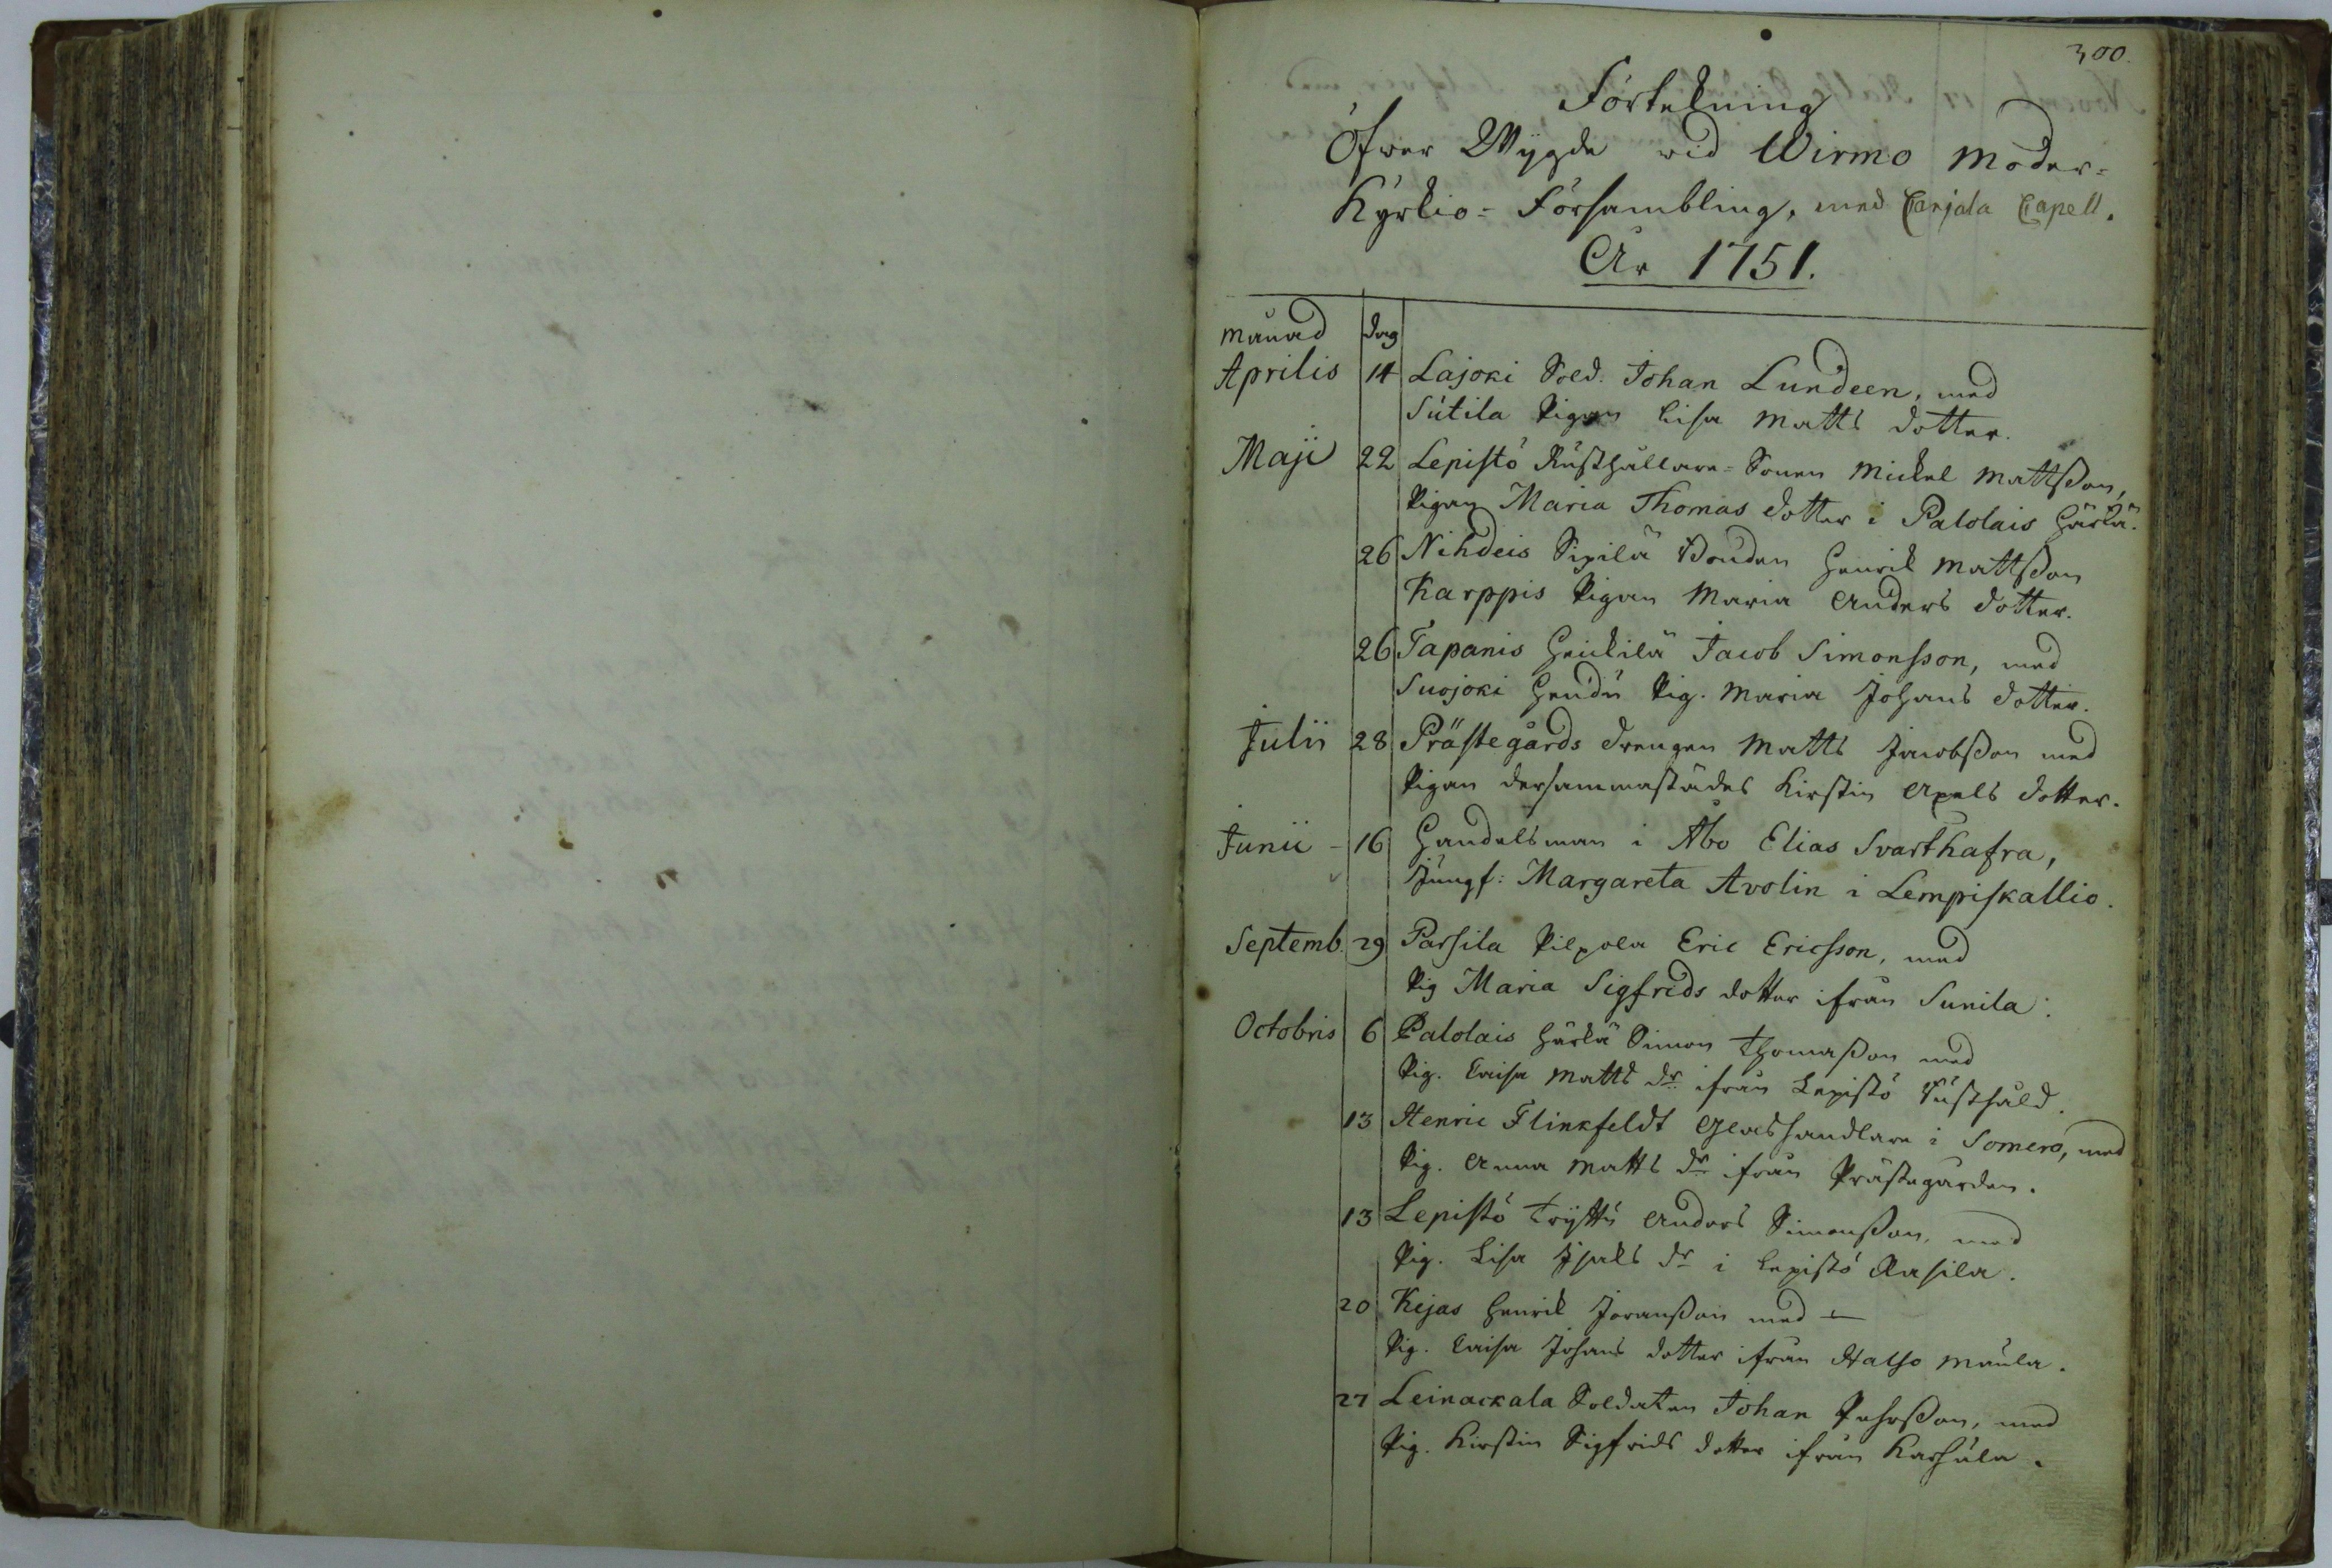 300.
Förtekning
Öfwer Wygde wid Wirmo Moder-
Kyrkio-Försambling, med Carjala Capell.
År 1751.
Månad dag
Aprilis 14 Lajoki Sold. Johan Lundeen, med
Sutila Pigan Lisa Matts dotter.
Maji 22 Lepistö Rusthållare-Sonen Mickel Mattsson,
Pigan Maria Thomas dotter i Palolais Härkä.
26 Nihdeis Sipilä Bonden Henrik Mattsson
Karppis Pigan Maria Anders dotter.
26 Tapanis Heickilä Jacob Simonsson, med
Suojoki Pig. Maria Johans dotter.
Julii 28 Prästegårds drengen Matts Jacobsson med
Pigan dersammastädes Kirstin Axels dotter.
Junii - 16 Handelsman i Åbo Elias Svarthafra,
Jungf: Margareta Avolin i Lempiskallio.
Septemb. 29 Parsila Pilpola Eric Ericsson, med
Pig Maria Sigfrids dotter ifrån Sunila.
Octobris 6 Palolais Härkä Simon Thomasson med
Pig. Caisa Matts dr ifrån Lepistö Rusthåld.
13 Henric Flinkfeldt Glashandlare i Somero, med
Pig. Anna Matts dr ifrån Prästegården.
13 Lepistö Trytti Anders Simonsson, med
Pig. Lisa Isaks dr i Lepistö Rasila.
20 Kejas Henrik Joransson med -
Pig. Caisa Johans dotter ifrån Halso Maula.
27 Leinackala Soldaten Johan Pehrsson, med
Pig. Kirstin Sigfrids dotter ifrån Karhula.